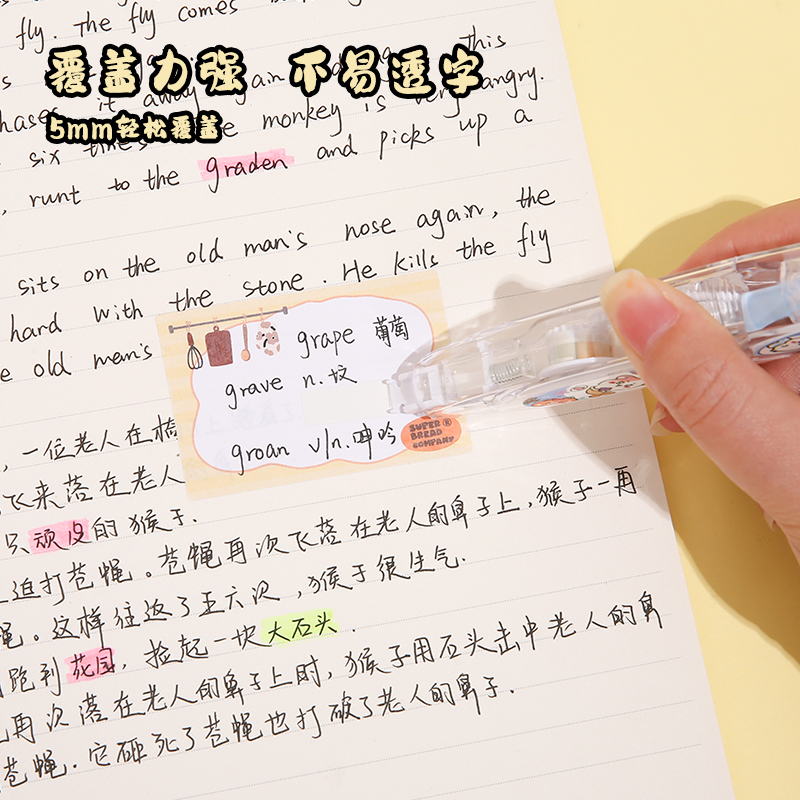 fly. The fly comes
覆盖力强 不易透字
5mm轻松覆盖
chases it away again this
six times monkey is very angry.
, runt to the graden and picks up a
sits on the old man's nose again, the
hard with the stone. He kills the fly
old man's
grape 葡萄
grave n.坟
groan v/n.呻吟
SUPER B
BREAD
COMPANY
，一位老人在桥
飞来落在老人
只顽皮的猴子.
追打苍蝇。苍蝇再次飞落在老人的鼻子上,猴子一再
蝇。这样往返了五六次,猴子很生气.
跑到花园,捡起一块大石头.
再次落在老人的鼻子上时,猴子用石头击中老人的鼻
苍蝇.它砸死了苍蝇也打破了老人的鼻子.